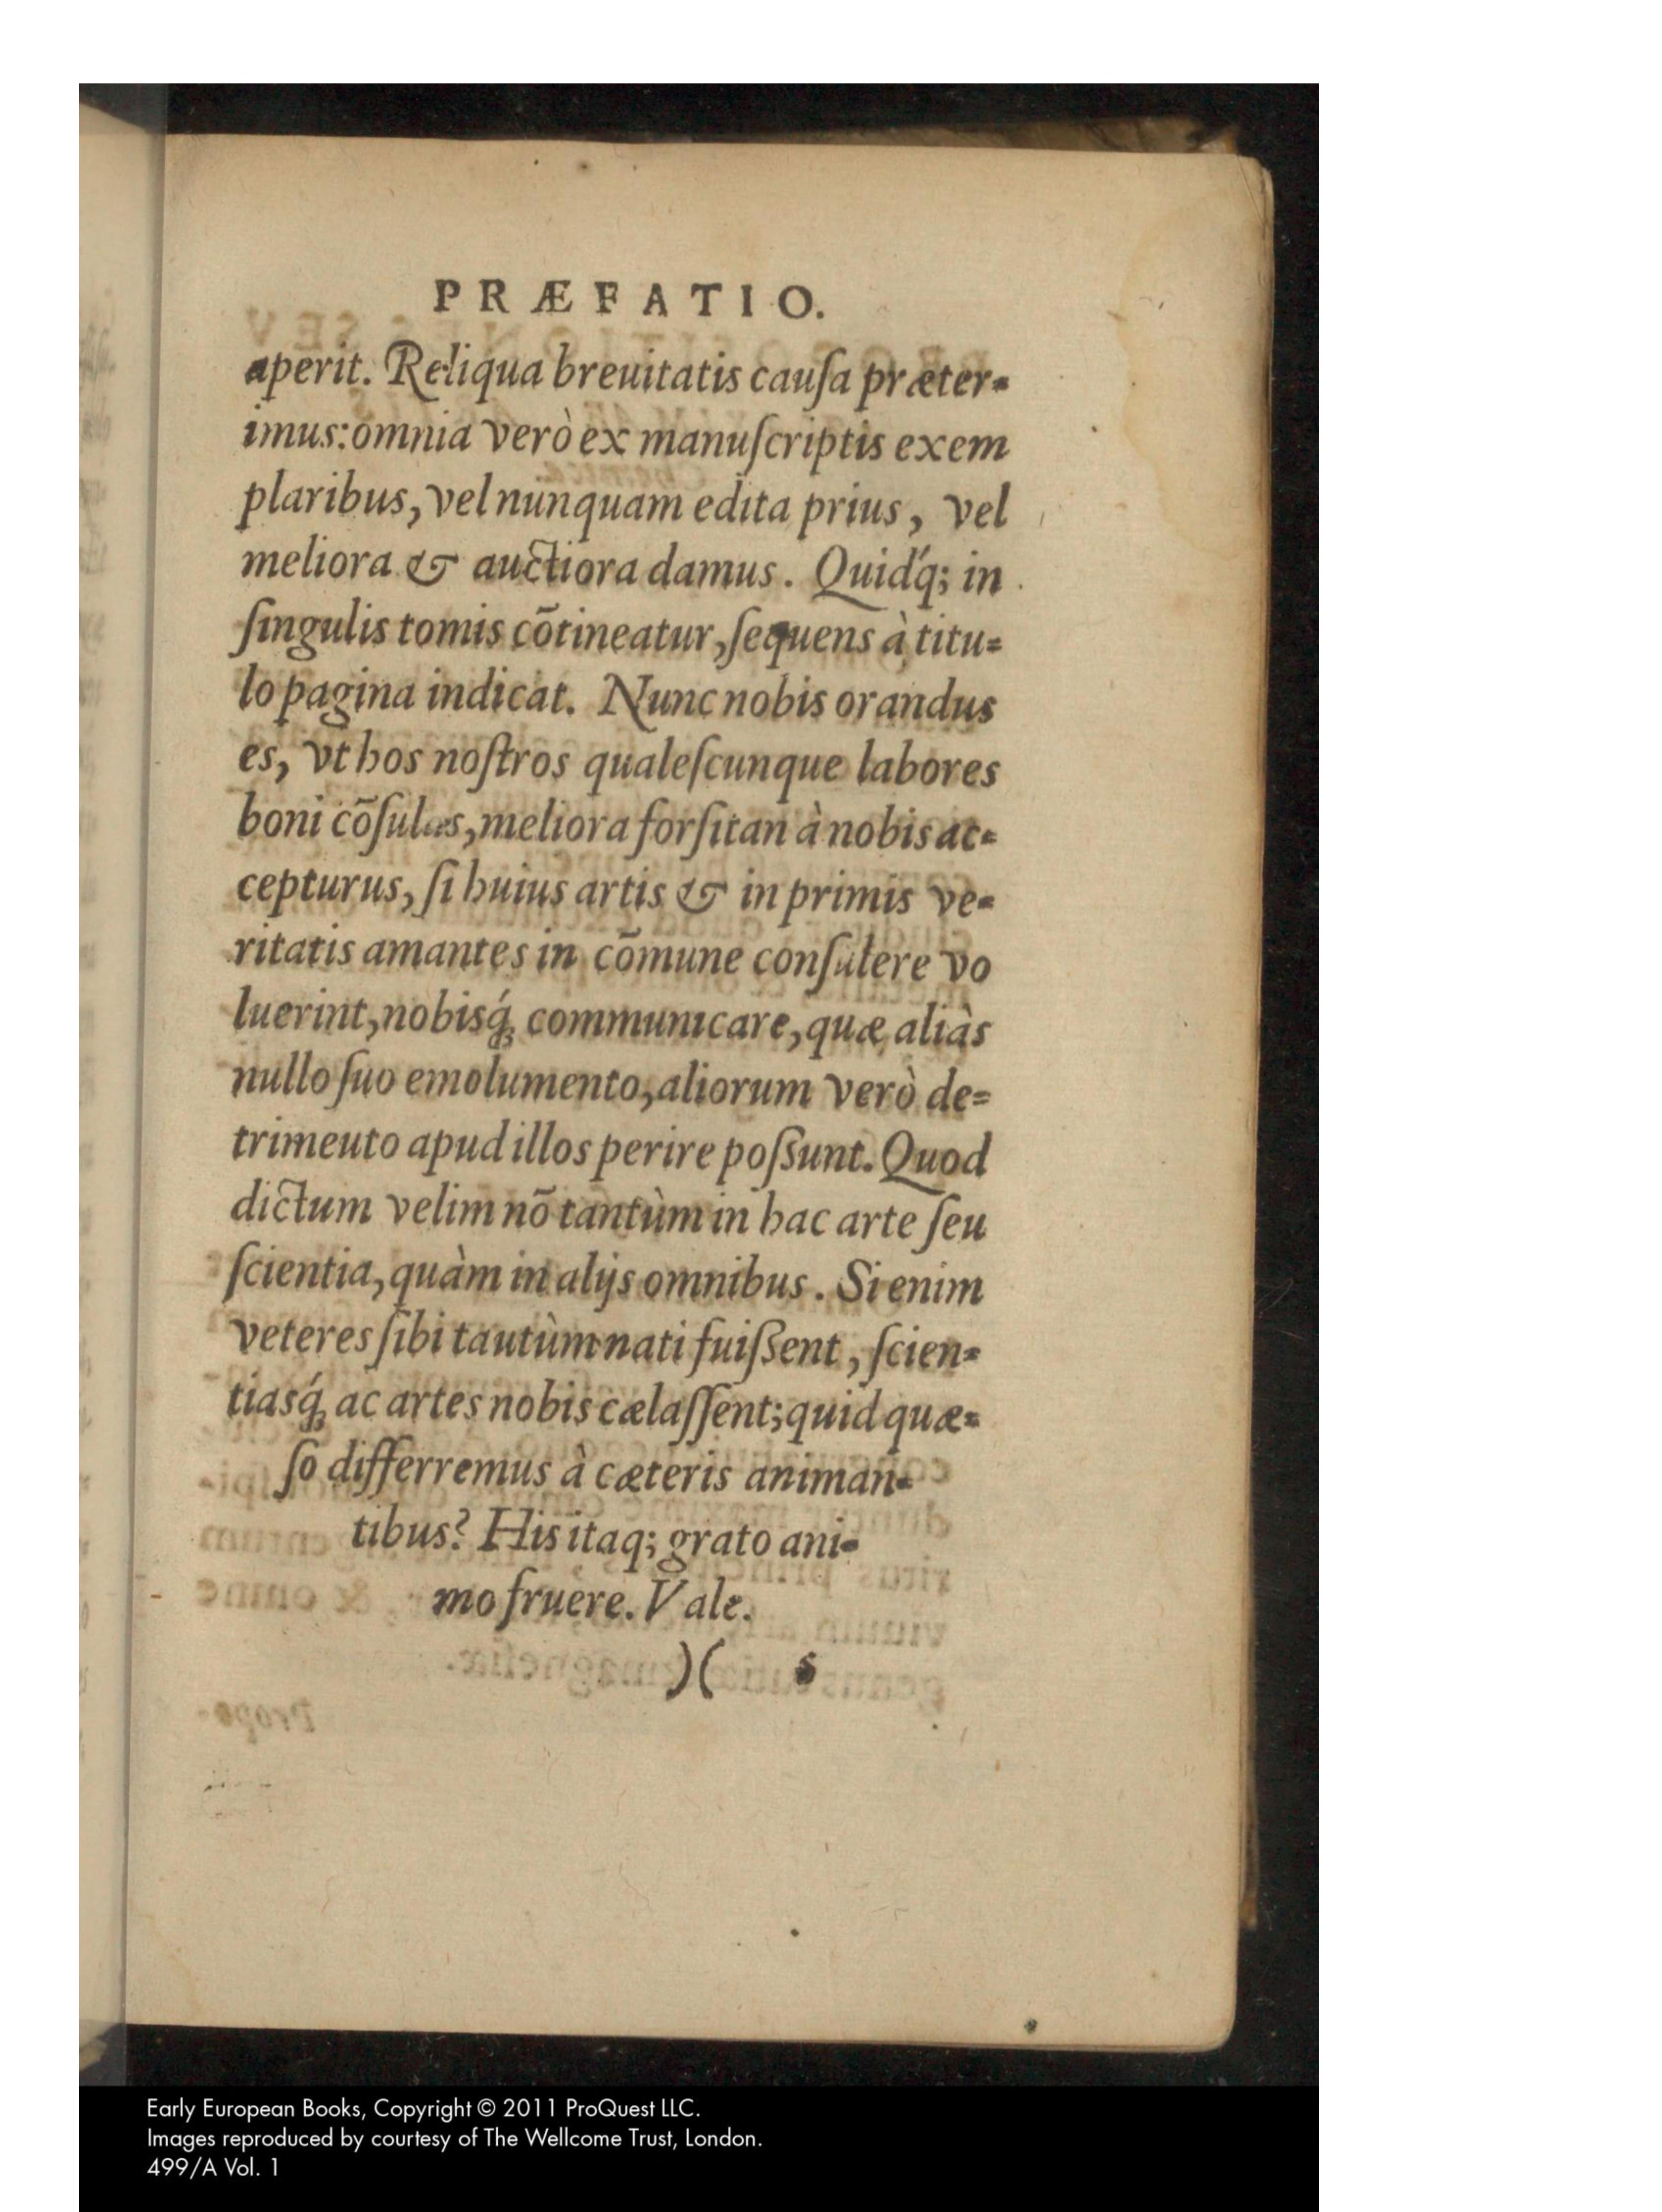 PRÆFATIO.
aperit. Reliqua breuitatis cauſa præter=
imus: omnia verò ex manuſcriptis exem
plaribus, vel nunquam edita prius, vel
meliora & auctiora damus. Quid'q; in
ſingulis tomis cōtineatur, ſequens à titu=
lo pagina indicat. Nunc nobis orandus
es, vt hos noſtros qualeſcunque labores
boni cōſulas, meliora forſitan à nobis ac=
cepturus, ſi huius artis & in primis ve=
ritatis amantes in cōmune conſulere vo
luerint, nobisq́ꝫ communicare, quæ aliàs
nullo ſuo emolumento, aliorum verò de=
trimeuto apud illos perire poſſunt. Quod
dictum velim nō tantùm in hac arte ſeu
ſcientia, quàm in alijs omnibus. Si enim
veteres ſibi tautùm nati fuiſſent, ſcien=
tiasq́ꝫ ac artes nobis cælaſſent; quid quæ=
ſo differremus à cæteris animan=
tibus? His itaq; grato ani=
mo fruere. Vale.
)( 5
Early European Books, Copyright © 2011 ProQuest LLC.
Images reproduced by courtesy of The Wellcome Trust, London.
499/A Vol. 1